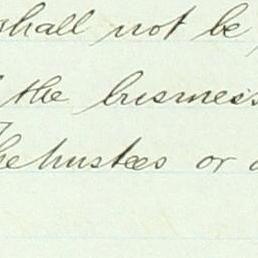 shall not be
the business
the trustees or